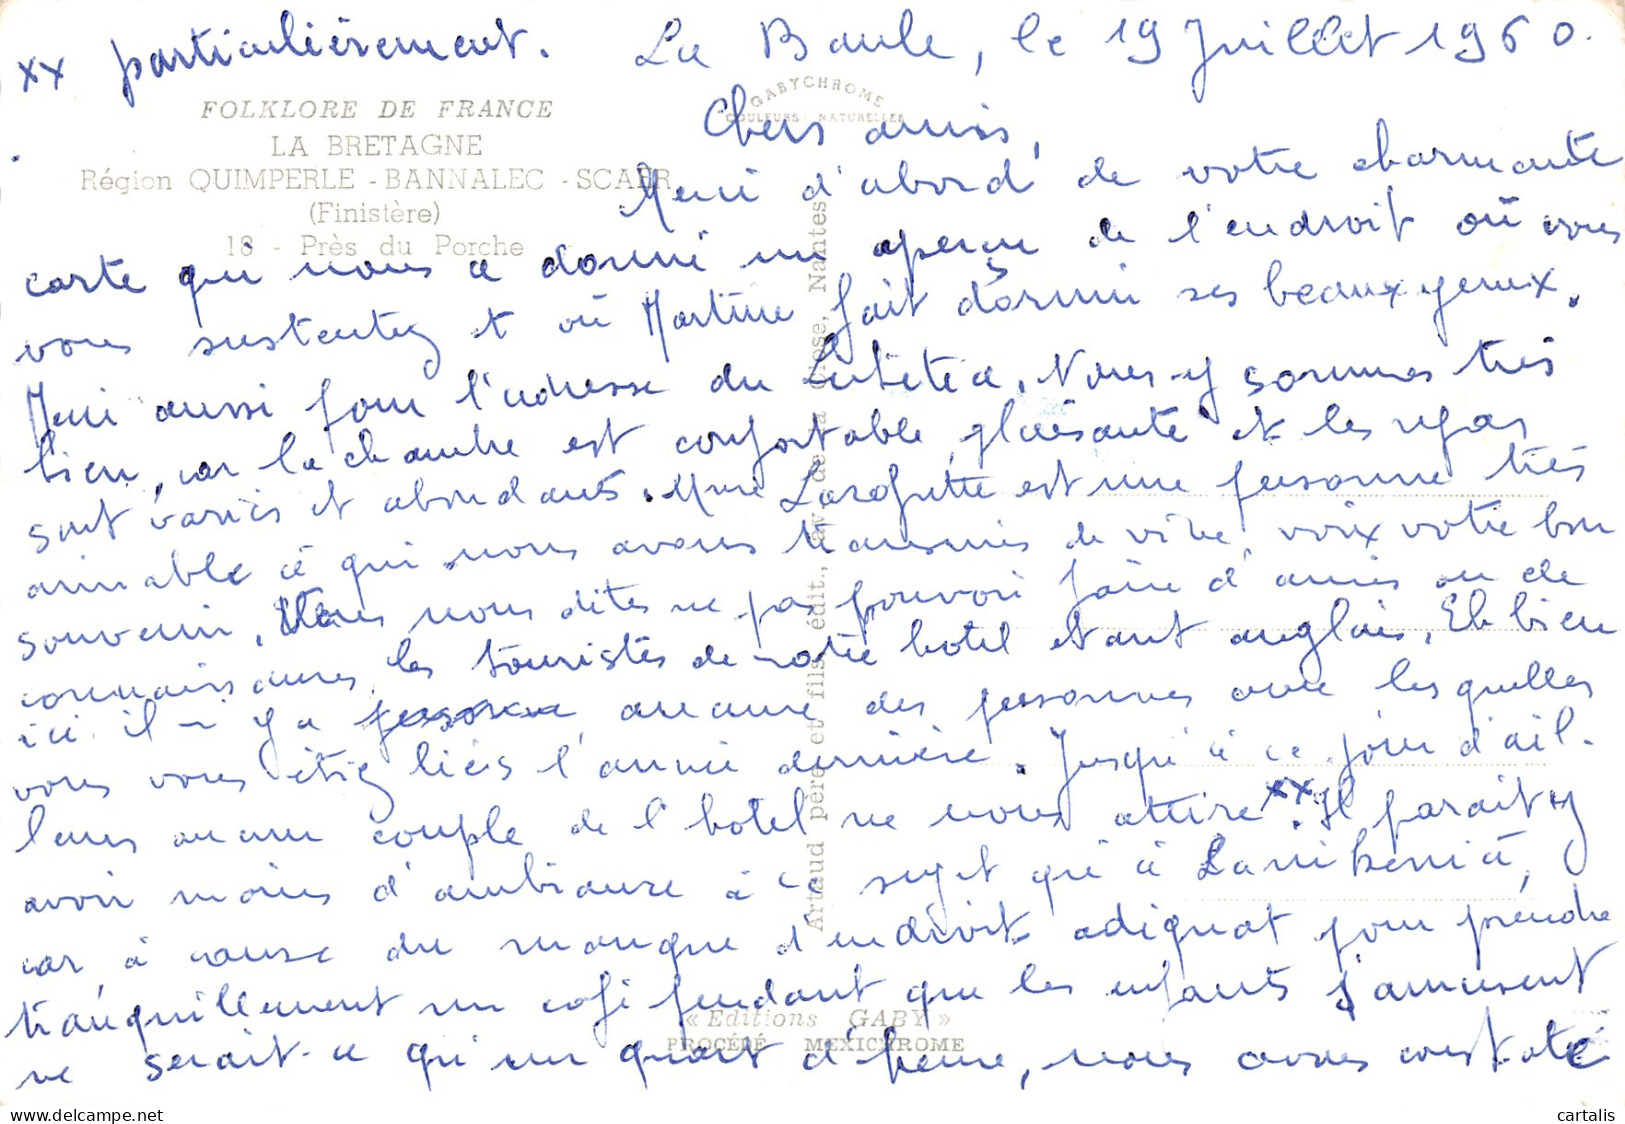 La Baule, le 19 Juillet 1960.
xx particulièrement.
GABYCHROME
COULEURS NATURELLES
FOLKLORE DE FRANCE
LA BRETAGNE
Région QUIMPERLE - BANNALEC - SCAER
(Finistère)
18 - Près du Porche
Chers amis,
Merci d'abord de votre charmante
carte qui nous a donné un aperçu de l'endroit où vous
vous sustentez et où Martine fait dormir ses beaux yeux.
Merci aussi pour l'adresse du Lutétia. Nous-y sommes très
bien, car la chambre est confortable, plaisante et les repas
sont variés et abondants. Mme est une personne très
aimable à qui nous avons transmis de vive voix votre bon
souvenir. Vous nous dites ne pas pouvoir faire d'amis ou de
connaissances, les touristes de votre hotel étant anglais. Eh bien
ici il-n'y a aucune des personnes avec lesquelles
vous vous étiez liés l'année dernière. Jusqu'à ce jour d'ail-
leurs aucun couple de l'hotel ne nous attire xx. Il parait y
avoir moins d'ambiance à ce sujet qu'à
car à cause du manque d'endroit adéquat pour prendre
tranquillement un café pendant que les enfants s'amusent
ne serait-ce qu'un quart d'heure, nous avons constaté
Artaud père et fils, édit., av. de la Close, Nantes
« Editions GABY »
PROCÉDÉ MEXICHROME
cartalis